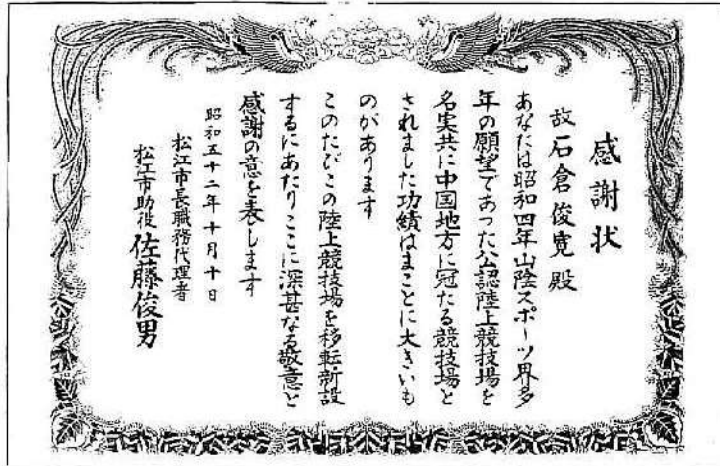 感謝状
故石倉俊寛殿
あなたは昭和四年山陰スポーツ界多
年の願望であった公認陸上競技場を
名実共に中国地方に冠たる競技場と
されました功績はまことに大きいも
のがあります
このたびこの陸上競技場を移転新設
するにあたりここに深甚なる敬意と
感謝の意を表します
昭和五十二年十月十日
松江市長職務代理者
松江市助役佐藤俊男